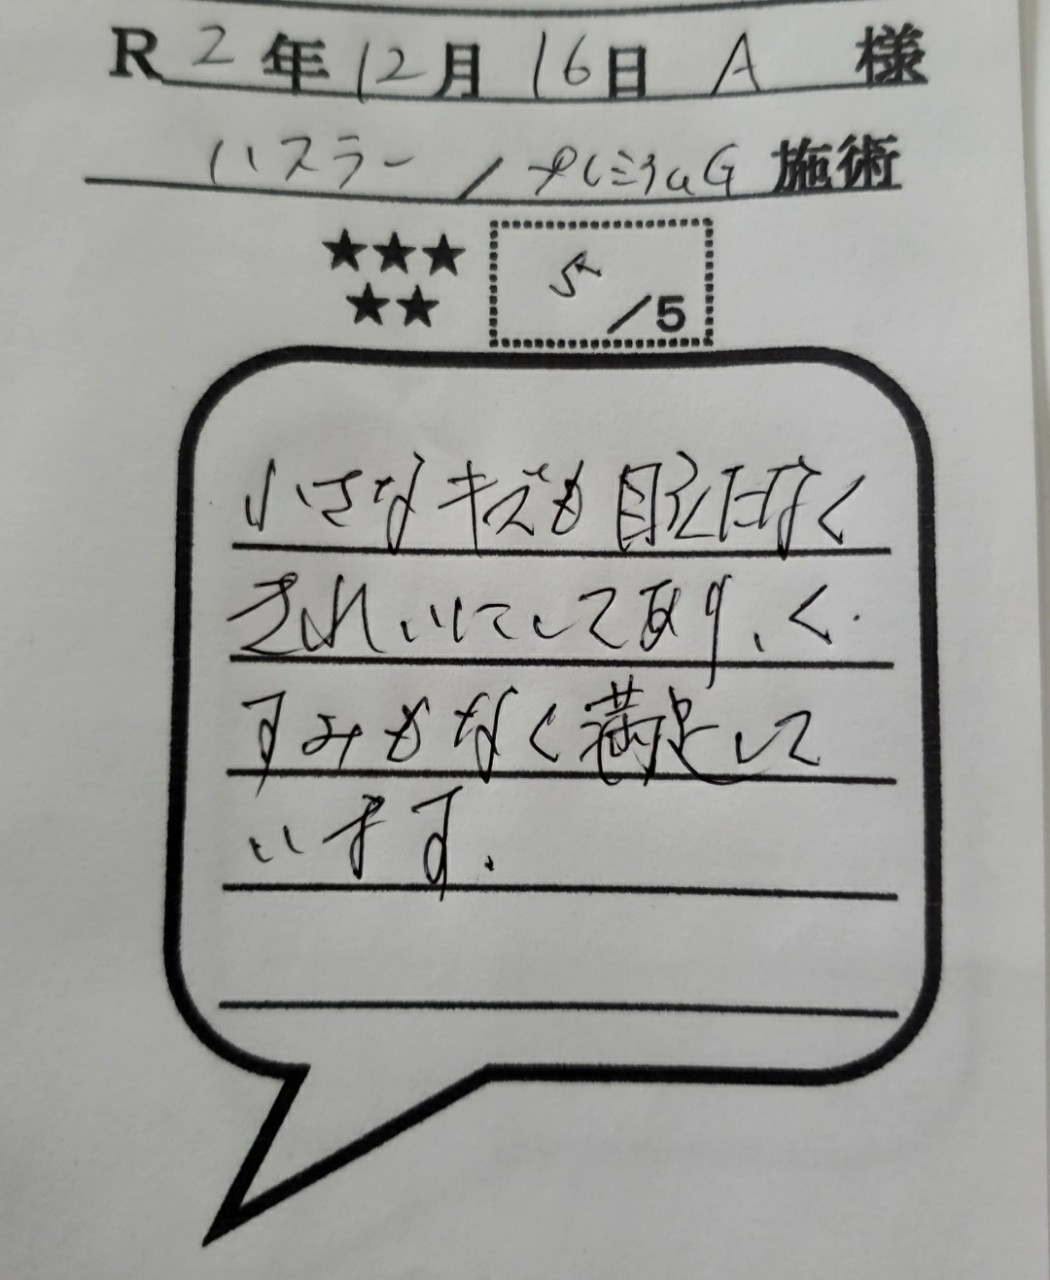 R 2年12月16日 A 様
ハスラー / プレミアムG 施術
★★★
★★
5
/5
小さなキズも目立たなく
きれいにしてあり、く
すみもなく満足して
います.